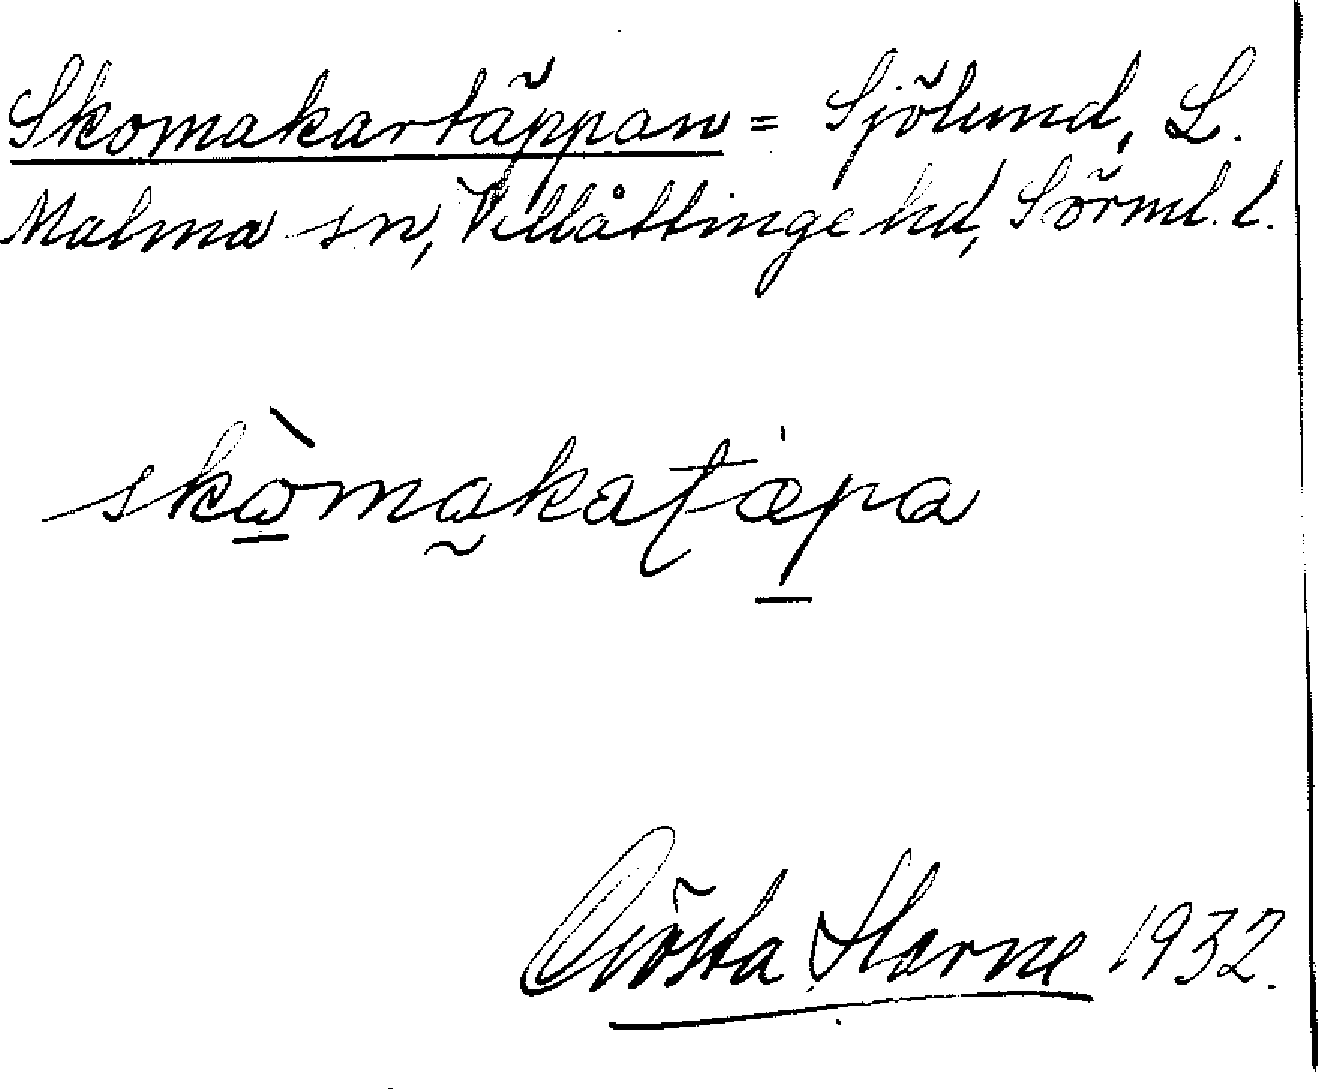 Skomakartäppan = Sjölund, L.
Malma sn, Villåttinge hd, Sörml. l.
skòmakatæpa
Gösta Harne 1932.